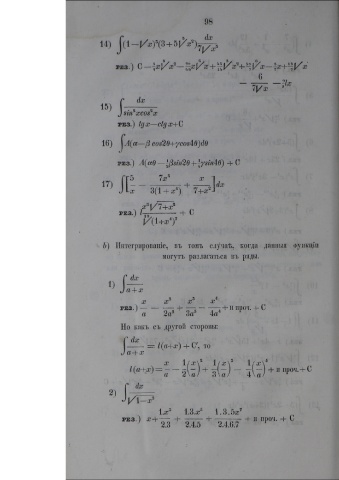 98
14) ∫(1—∛x)²(3+5∛x²) dx/7∛x²
рез.)
15) ∫ dx/sin²xcos²x
рез.) tgx—ctgx+C
16) ∫A(α—β cos2θ+γcos4θ)dθ
рез.) A(αθ —½βsin2θ+¼γsin4θ) + C
17) ∫[5/x — 7x³/3(1+x⁴) + x/7+x²]dx
рез.) + C
b) Интегрированіе, въ томъ случаѣ, когда данныя функціи
могутъ разлагаться въ рядъ.
1) ∫ dx/a+x
рез.) x/a — x²/2a² + x³/3a³ — x⁴/4a⁴ +и проч. + C
Но какъ съ другой стороны:
∫ dx/a+x = l(a+x) + C', то
l(a+x)= x/a — 1/2(x/a)² + 1/3(x/a)³ — 1/4(x/a)⁴ + и проч.+ C
2) ∫ dx/√1—x²
рез.) x+ 1.x³/2.3 + 1.3.x⁵/2.4.5 + 1.3.5x⁷/2.4.6.7 + и проч. + C